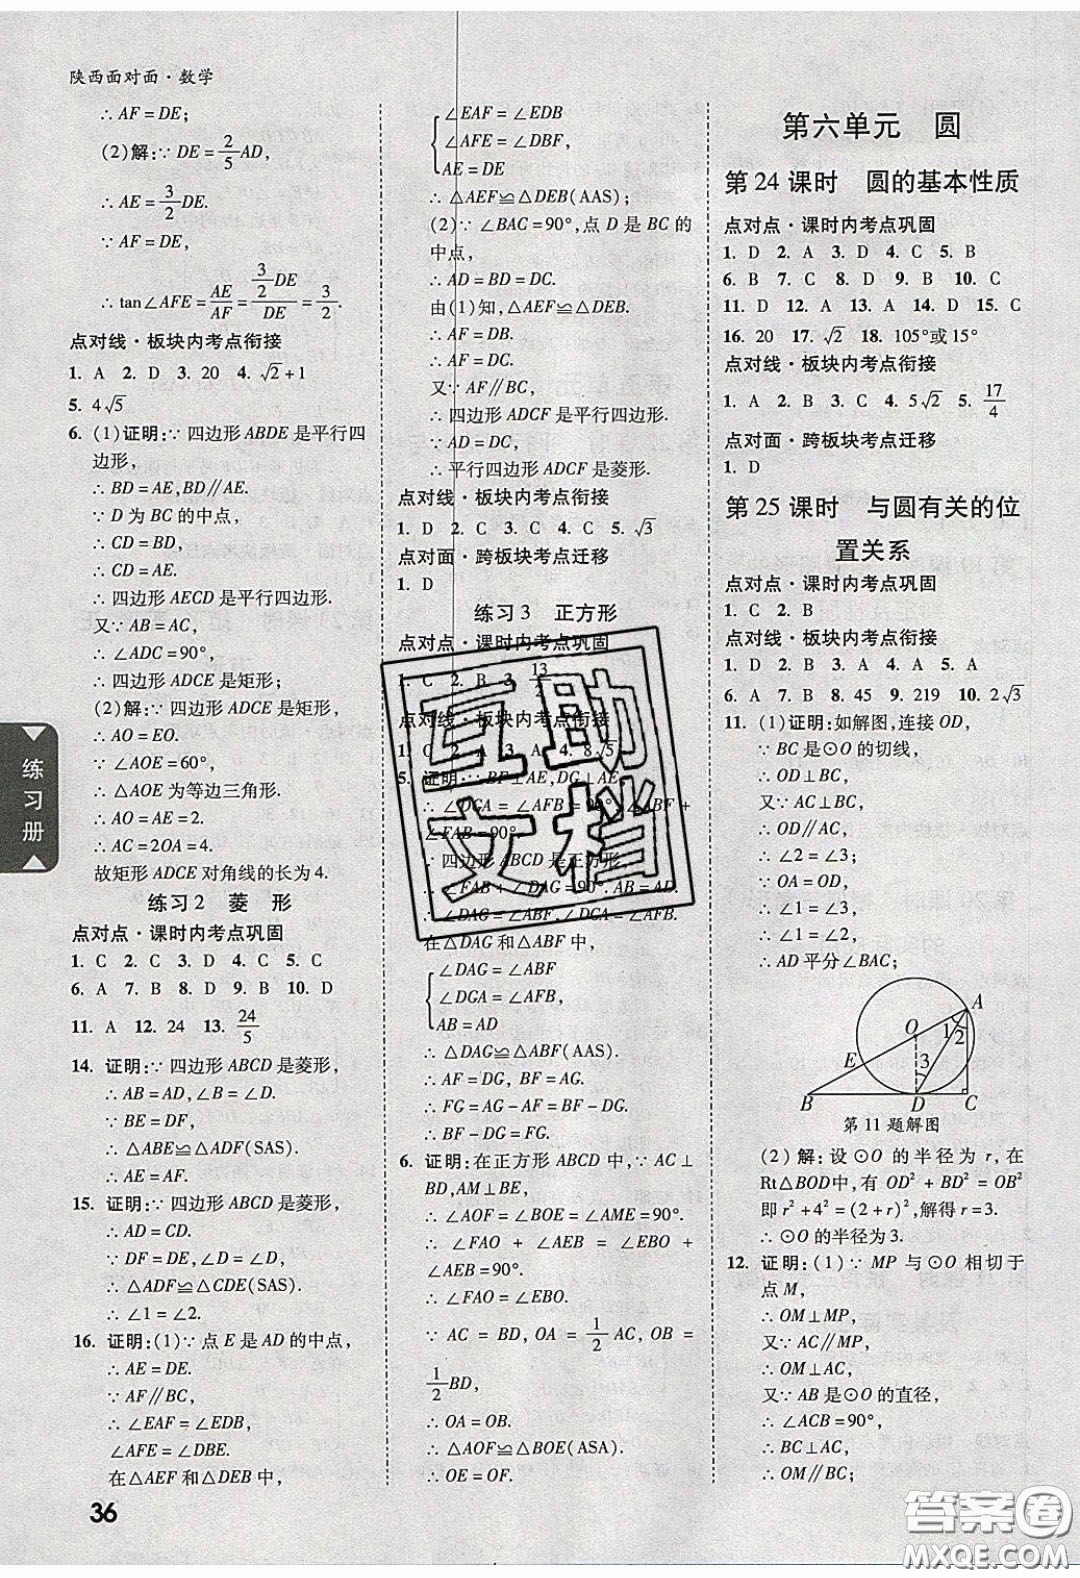 陕西面对面·数学
∴ AF=DE;
(2)解:∵ DE=2/5AD,
∴ AE=3/2DE.
∵ AF=DE,
∴ tan∠AFE=AE/AF=(3/2DE)/DE=3/2.
点对线·板块内考点衔接
1. A 2. D 3. 20 4. √2+1
5. 4√5
6. (1)证明:∵ 四边形 ABDE 是平行四
边形,
∴ BD=AE,BD∥AE.
∵ D 为 BC 的中点,
∴ CD=BD,
∴ CD=AE.
∴ 四边形 AECD 是平行四边形.
又∵ AB=AC,
∴ ∠ADC=90°,
∴ 四边形 ADCE 是矩形;
(2)解:∵ 四边形 ADCE 是矩形,
∴ AO=EO.
∵ ∠AOE=60°,
∴ △AOE 为等边三角形,
∴ AO=AE=2.
∴ AC=2OA=4.
故矩形 ADCE 对角线的长为 4.
练习2 菱 形
点对点·课时内考点巩固
1. C 2. C 3. D 4. C 5. C
6. A 7. D 8. B 9. B 10. D
11. A 12. 24 13. 24/5
14. 证明:∵ 四边形 ABCD 是菱形,
∴ AB=AD,∠B=∠D.
∵ BE=DF,
∴ △ABE≌△ADF(SAS).
∴ AE=AF.
15. 证明:∵ 四边形 ABCD 是菱形,
∴ AD=CD.
∵ DF=DE,∠D=∠D,
∴ △ADF≌△CDE(SAS).
∴ ∠1=∠2.
16. 证明:(1)∵ 点 E 是 AD 的中点,
∴ AE=DE.
∵ AF∥BC,
∴ ∠EAF=∠EDB,
∠AFE=∠DBE.
在△AEF 和△DEB 中,
36
练习册
∠EAF=∠EDB
∠AFE=∠DBF,
AE=DE
∴ △AEF≌△DEB(AAS);
(2)∵ ∠BAC=90°,点 D 是 BC 的
中点,
∴ AD=BD=DC.
由(1)知,△AEF≌△DEB.
∴ AF=DB.
∴ AF=DC.
又∵ AF∥BC,
∴ 四边形 ADCF 是平行四边形.
∵ AD=DC,
∴ 平行四边形 ADCF 是菱形.
点对线·板块内考点衔接
1. D 2. C 3. C 4. C 5. √3
点对面·跨板块考点迁移
1. D
练习3 正方形
点对点·课时内考点巩固
1. C 2. B 3. 13/2
点对线·板块内考点衔接
1. C 2. A 3. A 4. 8√5
5. 证明:∵ BF⊥AE,DG⊥AE,
∴ ∠DGA=∠AFB=90°,∠BAF+
∠FAB=90°.
∵ 四边形 ABCD 是正方形,
∴ ∠FAB+∠DAG=90°,AB=AD.
∴ ∠DAG=∠ABF,∠DGA=∠AFB.
在△DAG 和△ABF 中,
∠DAG=∠ABF
∠DGA=∠AFB,
AB=AD
∴ △DAG≌△ABF(AAS).
∴ AF=DG, BF=AG.
∴ FG=AG-AF=BF-DG.
∴ BF-DG=FG.
6. 证明:在正方形 ABCD 中,∵ AC⊥
BD,AM⊥BE,
∴ ∠AOF=∠BOE=∠AME=90°.
∴ ∠FAO + ∠AEB = ∠EBO +
∠AEB=90°.
∴ ∠FAO=∠EBO.
∵ AC = BD, OA = 1/2 AC, OB =
1/2BD,
∴ OA=OB.
∴ △AOF≌△BOE(ASA).
∴ OE=OF.
互助
文档
第六单元 圆
第 24 课时 圆的基本性质
点对点·课时内考点巩固
1. D 2. A 3. D 4. C 5. B
6. B 7. C 8. D 9. B 10. C
11. D 12. A 13. A 14. D 15. C
16. 20 17. √2 18. 105°或15°
点对线·板块内考点衔接
1. A 2. B 3. C 4. 5√2 5. 17/4
点对面·跨板块考点迁移
1. D
第 25 课时 与圆有关的位
置关系
点对点·课时内考点巩固
1. C 2. B
点对线·板块内考点衔接
1. D 2. B 3. D 4. C 5. A
6. A 7. B 8. 45 9. 219 10. 2√3
11. (1)证明:如解图,连接 OD,
∵ BC 是⊙O 的切线,
∴ OD⊥BC.
又∵ AC⊥BC,
∴ OD∥AC,
∴ ∠2=∠3;
∵ OA=OD,
∴ ∠1=∠3,
∴ ∠1=∠2,
∴ AD 平分∠BAC;
A
O
1
2
E
3
B
D
C
第 11 题解图
(2)解:设⊙O 的半径为 r,在
Rt△BOD中,有 OD²+BD²=OB²
即 r²+4²=(2+r)²,解得 r=3.
∴ ⊙O 的半径为 3.
12. 证明:(1)∵ MP 与⊙O 相切于
点 M,
∴ OM⊥MP,
又∵ AC∥MP,
∴ OM⊥AC,
又∵ AB 是⊙O 的直径,
∴ ∠ACB=90°,
∴ BC⊥AC,
∴ OM∥BC;
答案圈
MXQE.COM